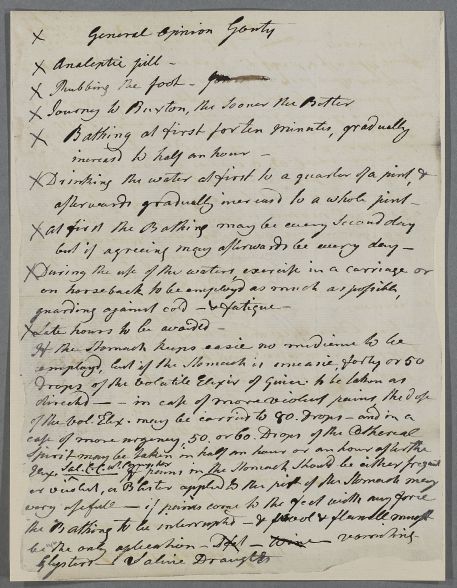 × General Opinion Gouty
× Analeptic pill -
× Rubbing the foot -
× Journey to Buxton, the sooner the Better
× Bathing at first for ten minutes, gradually
increas'd to half an hour -
× Drinking the water at first to a quarter of a pint, &
afterwards gradually increas'd to a whole pint -
× at first the Bathing may be every second day
but if agreeing may afterwards be every day -
× During the use of the waters, exercise in a carriage or
on horseback to be employ'd as much as possible,
guarding against cold - & fatigue -
× Late hours to be avoided -
If the Stomach keeps easie no medicine to be
employ'd, but if the Stomach is uneasie, forty or 50
Drops of the Volatile Elixir of Guiac: to be taken as
directed - - in case of more violent pains the dose
of the Vol: Elix: may be carried to 80. Drops - and in a
case of more urgency, 50. or 60. Drops of the Etherial
Spirit may be taken in half an hour or an hour after the
Elix: Sal. C. C. if pains in the Stomach should be either frequent
or violent, a Blister applied to the pit of the Stomach may
very usefull - if pains come to the feet with any force
the Bathing to be interrupted - & wool & flannell must
be the only application - Diet - Wine nourishing
Glysters Saline Draughts